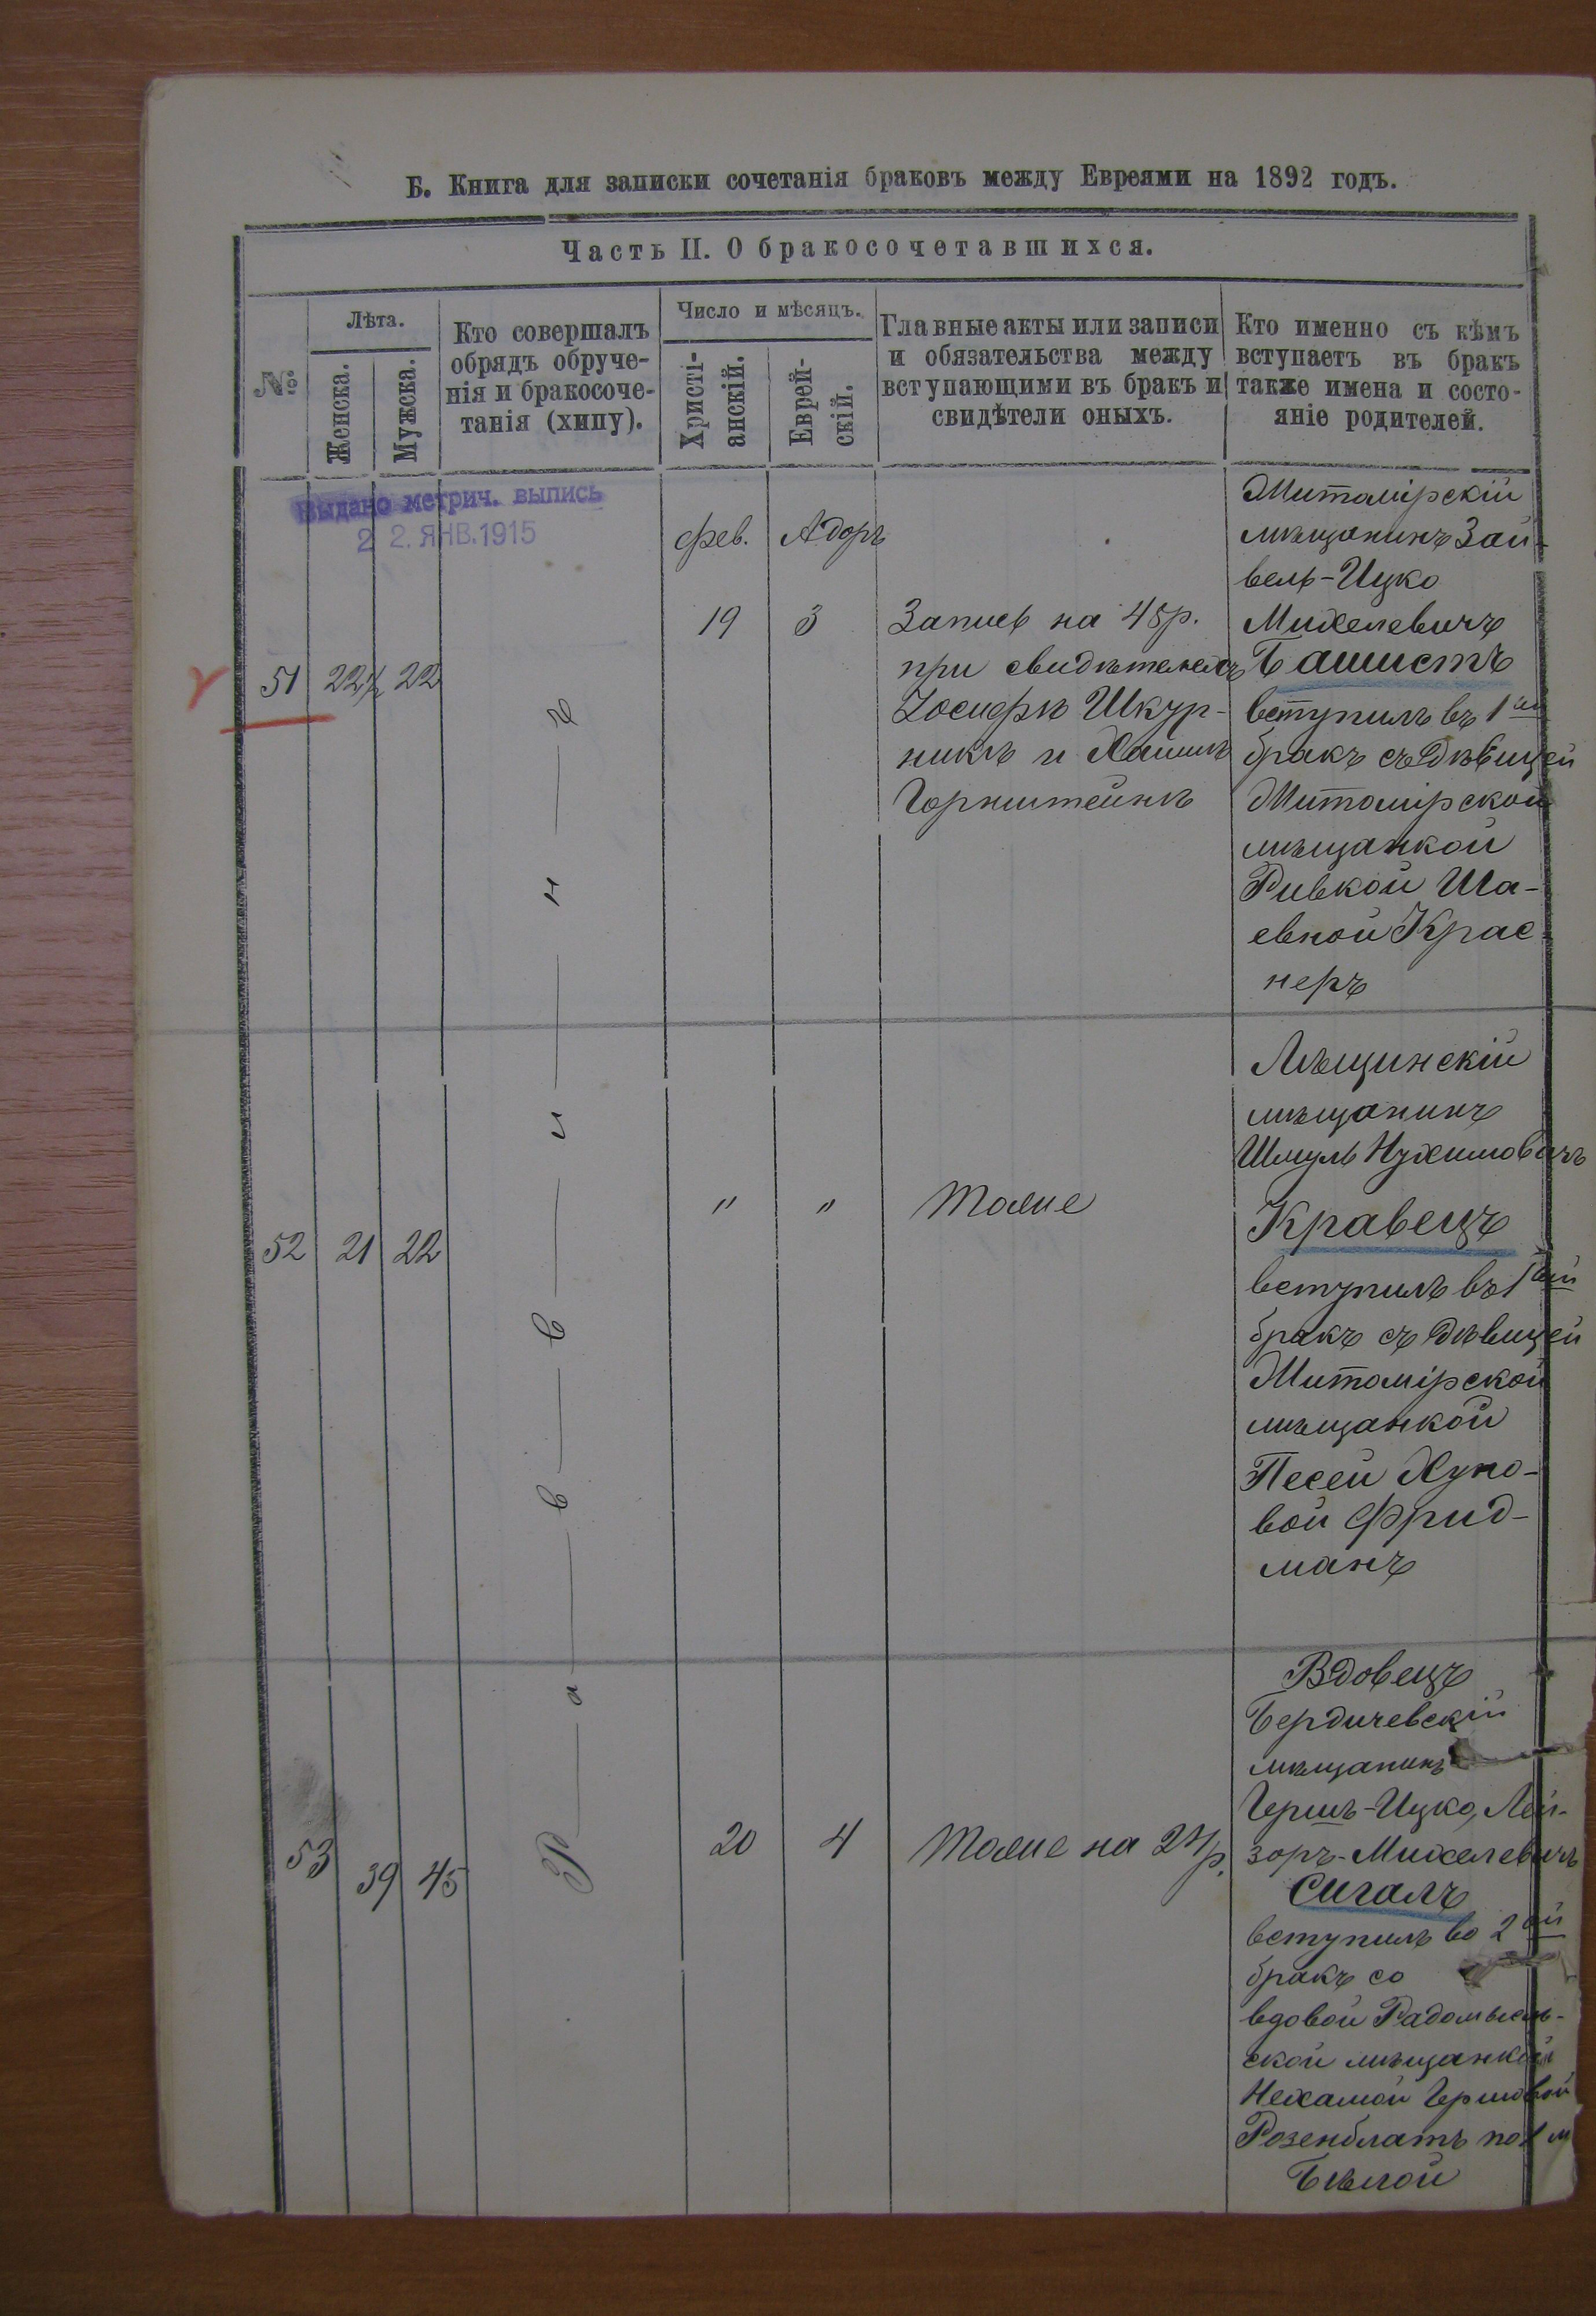 Б. Книга для записки сочетанія браковъ между Евреями на 1892 годъ.
Часть II. О бракосочетавшихся.
№
Лѣта.
Женска.
Мужска.
Кто совершалъ
обрядъ обруче-
нія и бракосоче-
танія (хипу).
Число и мѣсяцъ.
Христі-
анскій.
Еврей-
скій.
Главные акты или записи
и обязательства между
вступающими въ бракъ и
свидѣтели оныхъ.
Кто именно съ кѣмъ
вступаетъ въ бракъ
также имена и состо-
яніе родителей.
Выдано метрич. выпись
2 2. ЯНВ. 1915
Р а в в и н ъ
51
22½
22
фев.
19
Адоръ
3
Запись на 48р.
при свидѣтеляхъ
Іосифѣ Шкур-
никѣ и Хаимѣ
Горнштейнѣ
Житомірскій
мѣщанинъ Зай-
вель-Ицко
Михелевичъ
Башистъ
вступилъ въ 1ый
бракъ съ дѣвицей
Житомірской
мѣщанкой
Ривкой Ша-
евной Крас-
неръ
52
21
22
"
"
Тоже
Лѣщинскій
мѣщанинъ
Шмуль Нухимовичъ
Кравецъ
вступилъ въ 1ый
бракъ съ дѣвицей
Житомірской
мѣщанкой
Песей Хуно-
вой Фрид-
манъ
53
39
45
20
4
Тоже на 24р.
Вдовецъ
Бердичевскій
мѣщанинъ
Гершъ-Ицко, Лей-
зоръ-Михелевичъ
Сигалъ
вступилъ во 2ой
бракъ со
вдовой Радомысль-
ской мѣщанкой
Нехамой Гершовой
Розенблатъ по 1 м
Бѣлой